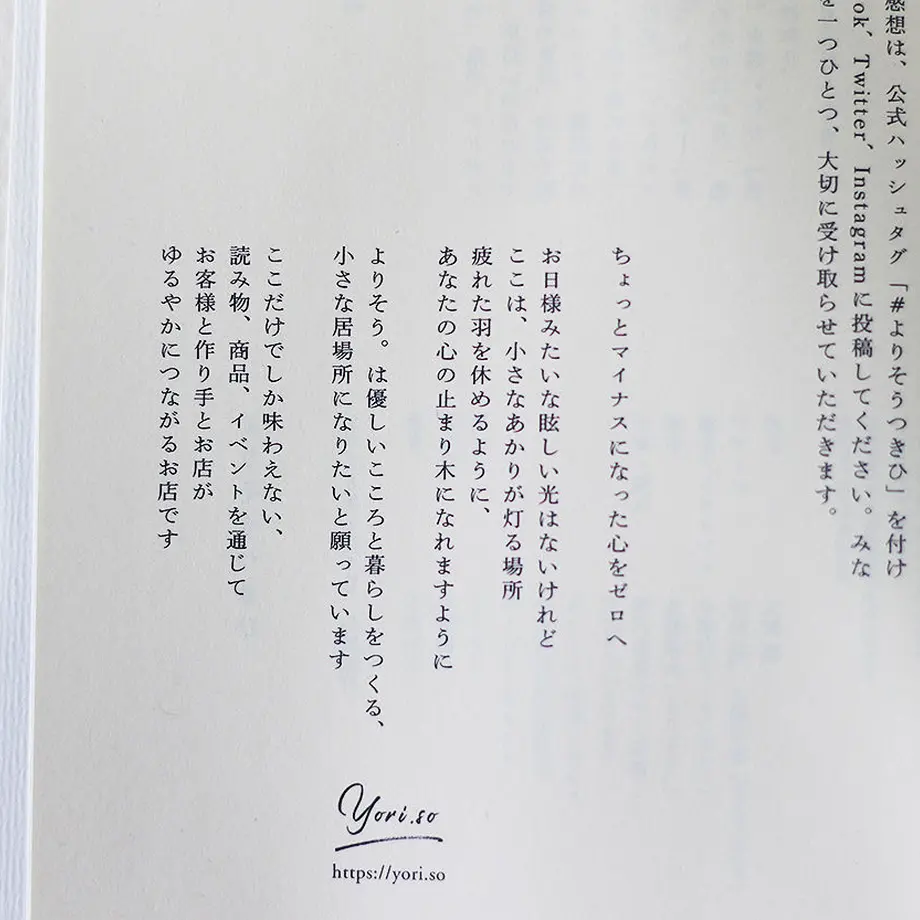 感想は、公式ハッシュタグ「#よりそうつきひ」を付け
ok、Twitter、Instagramに投稿してください。みな
を一つひとつ、大切に受け取らせていただきます。
ちょっとマイナスになった心をゼロへ
お日様みたいな眩しい光はないけれど
ここは、小さなあかりが灯る場所
疲れた羽を休めるように、
あなたの心の止まり木になれますように
よりそう。は優しいこころと暮らしをつくる、
小さな居場所になりたいと願っています
ここだけでしか味わえない、
読み物、商品、イベントを通じて
お客様と作り手とお店が
ゆるやかにつながるお店です
Yori.so
https://yori.so